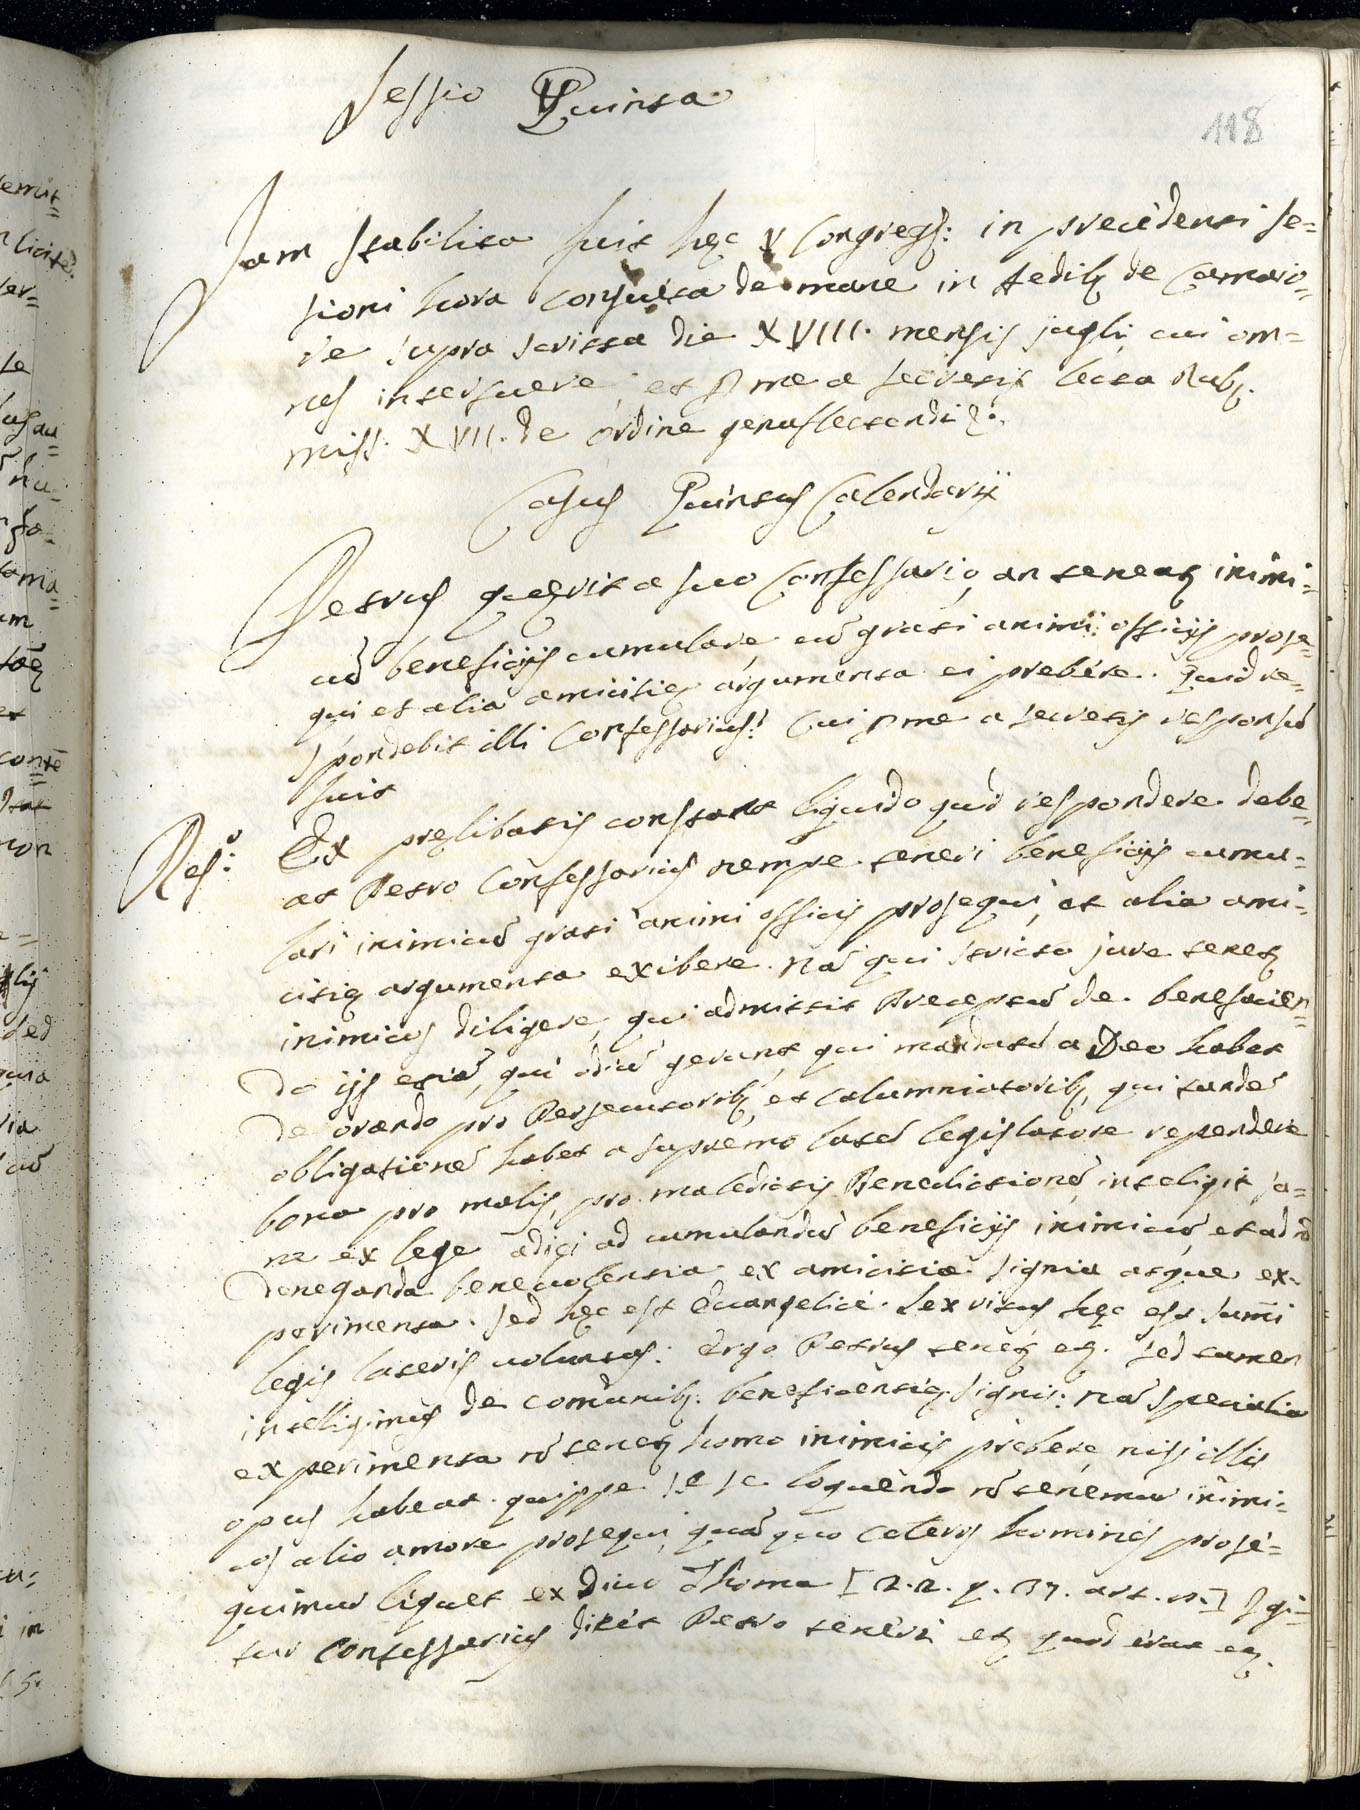 Sessio Quinta
118
Jam stabilita fuit hęc V Congreg.: in precedenti se=
sioni hora consueta de mane in Aedib. de Camaio=
re supra scritta die XVIII. mensis julii cui om=
nes interfuere, et p me a secretis lecta Rub.
miss. XVII. de ordine genuflectendi &.
Casus Quintus Calendarij
Petrus quęrit a suo Confessario, an teneat inimi=
cũ beneficijs cumulare cũ grati animi officijs prose=
qui et alia amicitię argumenta ei prebére. Quid re=
spondebit illi Confessarius? Cui p me a secretis responsũ
fuit
Resp.o: Ex pręlibatis constat liquido quid respondere debe=
at Petro Confessarius nempe teneri beneficijs cumu=
lari inimicũ grati animi officijs prosequi, et alia ami=
citię argumenta exibere. Nã qui stricto jure tenet
inimicos diligere, qui admittit Preceptũ de benefacien=
do ijs etiã, qui odiũ gerunt, qui mandatũ a Deo habet
de orando pro Persecutorib. et calumniatorib. qui tandẽ
obligationẽ habet a supremo latẽ legislatore rependere
bona pro malis, pro maledictis Benedictionẽ, inteligit sa=
ne ex lege adigi ad cumulandũ beneficijs inimicũ, et ad nõ
deneganda benevolentia ex amicitiæ signia atque ex=
perimenta. Sed hęc est Evangelicę Lex virtus hęc est sum̃i
legis lateris voluntas: Ergo Petrus tenet eq. Sed tamen
intelligimus de comunib. beneficentię signis: Nã specialia
experimenta nõ tenet homo inimicis prebere, nisi illis
opus habeat. quippe se se loquendo nõ tenemur inimi=
cos alio amore prosequi, quã quo ceteros homines prose=
quimur liquet ex Divo Thoma [2.2. q. 37. art. ] Igi=
tur Confessarius dicet Petro teneri et quod erat eq.